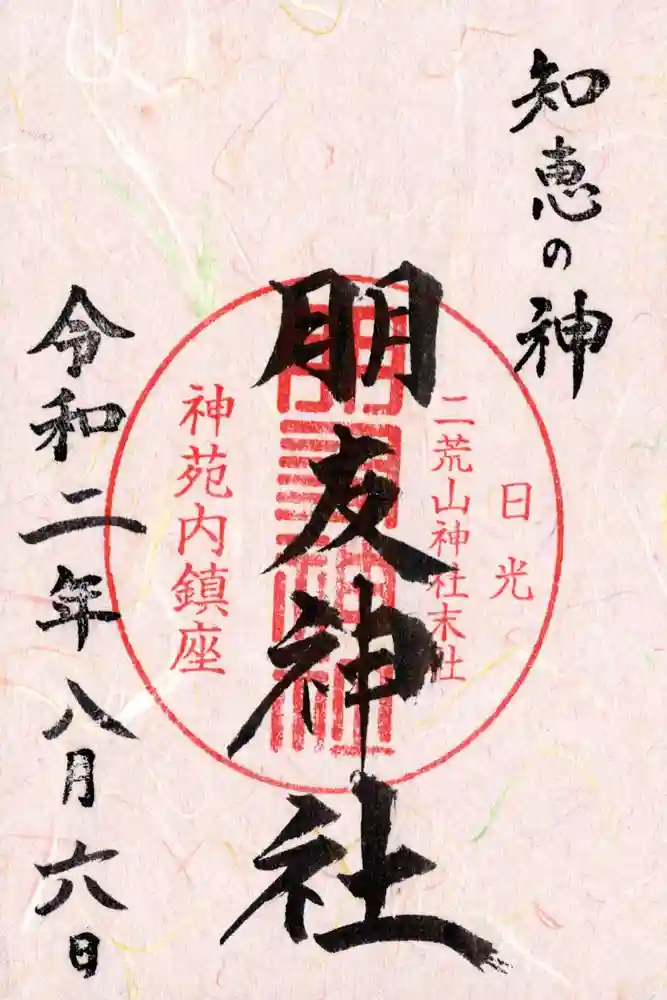 知恵の神
日光
二荒山神社末社
朋友神社
神苑内鎮座
令和二年八月六日